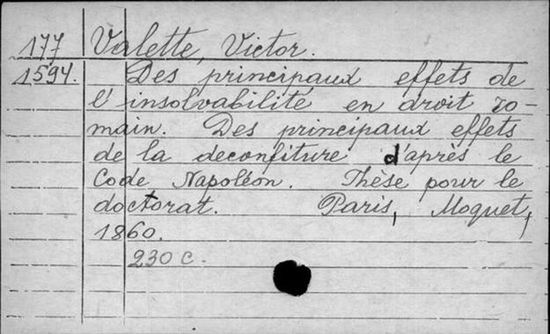 177 Valette, Victor.
1594. Des principaux effets de
l'insolvabilité en droit ro-
main. Des principaux effets
de la deconfiture d'après le
Code Napoléon. Thèse pour le
doctorat. Paris, Moquet,
1860.
230 c.